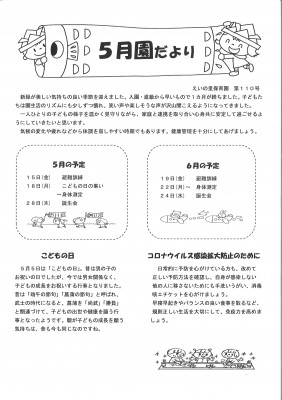 5月園だより
えいの里保育園　第110号
新緑が美しい気持ちの良い季節を迎えました。入園・進級から早いもので1カ月が経ちました。子どもた
ちは園生活のリズムにも少しずつ慣れ、笑い声や楽しそうな声が沢山聞こえるようになってきました。
一人ひとりの子どもの様子を温かく見守りながら、家庭と連携を取り合い心身共に安定して過ごせるよう
にしていきたいと思います。
気候の変化や疲れなどから体調を崩しやすい時期でもあります。健康管理を十分にしてあげましょう。
5月の予定
15日(金)　避難訓練
18日(月)　こどもの日の集い
～身体測定
28日(木)　誕生会
6月の予定
19日(金)　避難訓練
22日(月)～　身体測定
24日(水)　誕生会
こどもの日
5月5日は「こどもの日」。昔は男の子の
お祝いの日でしたが、今では男女関係なく、
子どもの成長をお祝いする行事となりました。
昔は「端午の節句」「菖蒲の節句」と呼ばれ、
武士の時代になると、菖蒲を「尚武」「勝負」
と関連づけて、子どもの出世や健康を願う行
事となったようです。親が子どもの成長を願う
気持ちは、昔も今も同じなのですね。
コロナウイルス感染拡大防止のために
日常的に予防を心がけている方も、改めて
正しい予防方法を確認し、自身が感染しない
他の人に移さないためにも手洗いうがい、消毒
咳エチケットを心がけましょう。
早寝早起きやバランスの良い食事を取るなど、
規則正しい生活を大切にして、免疫力を高めま
しょう。